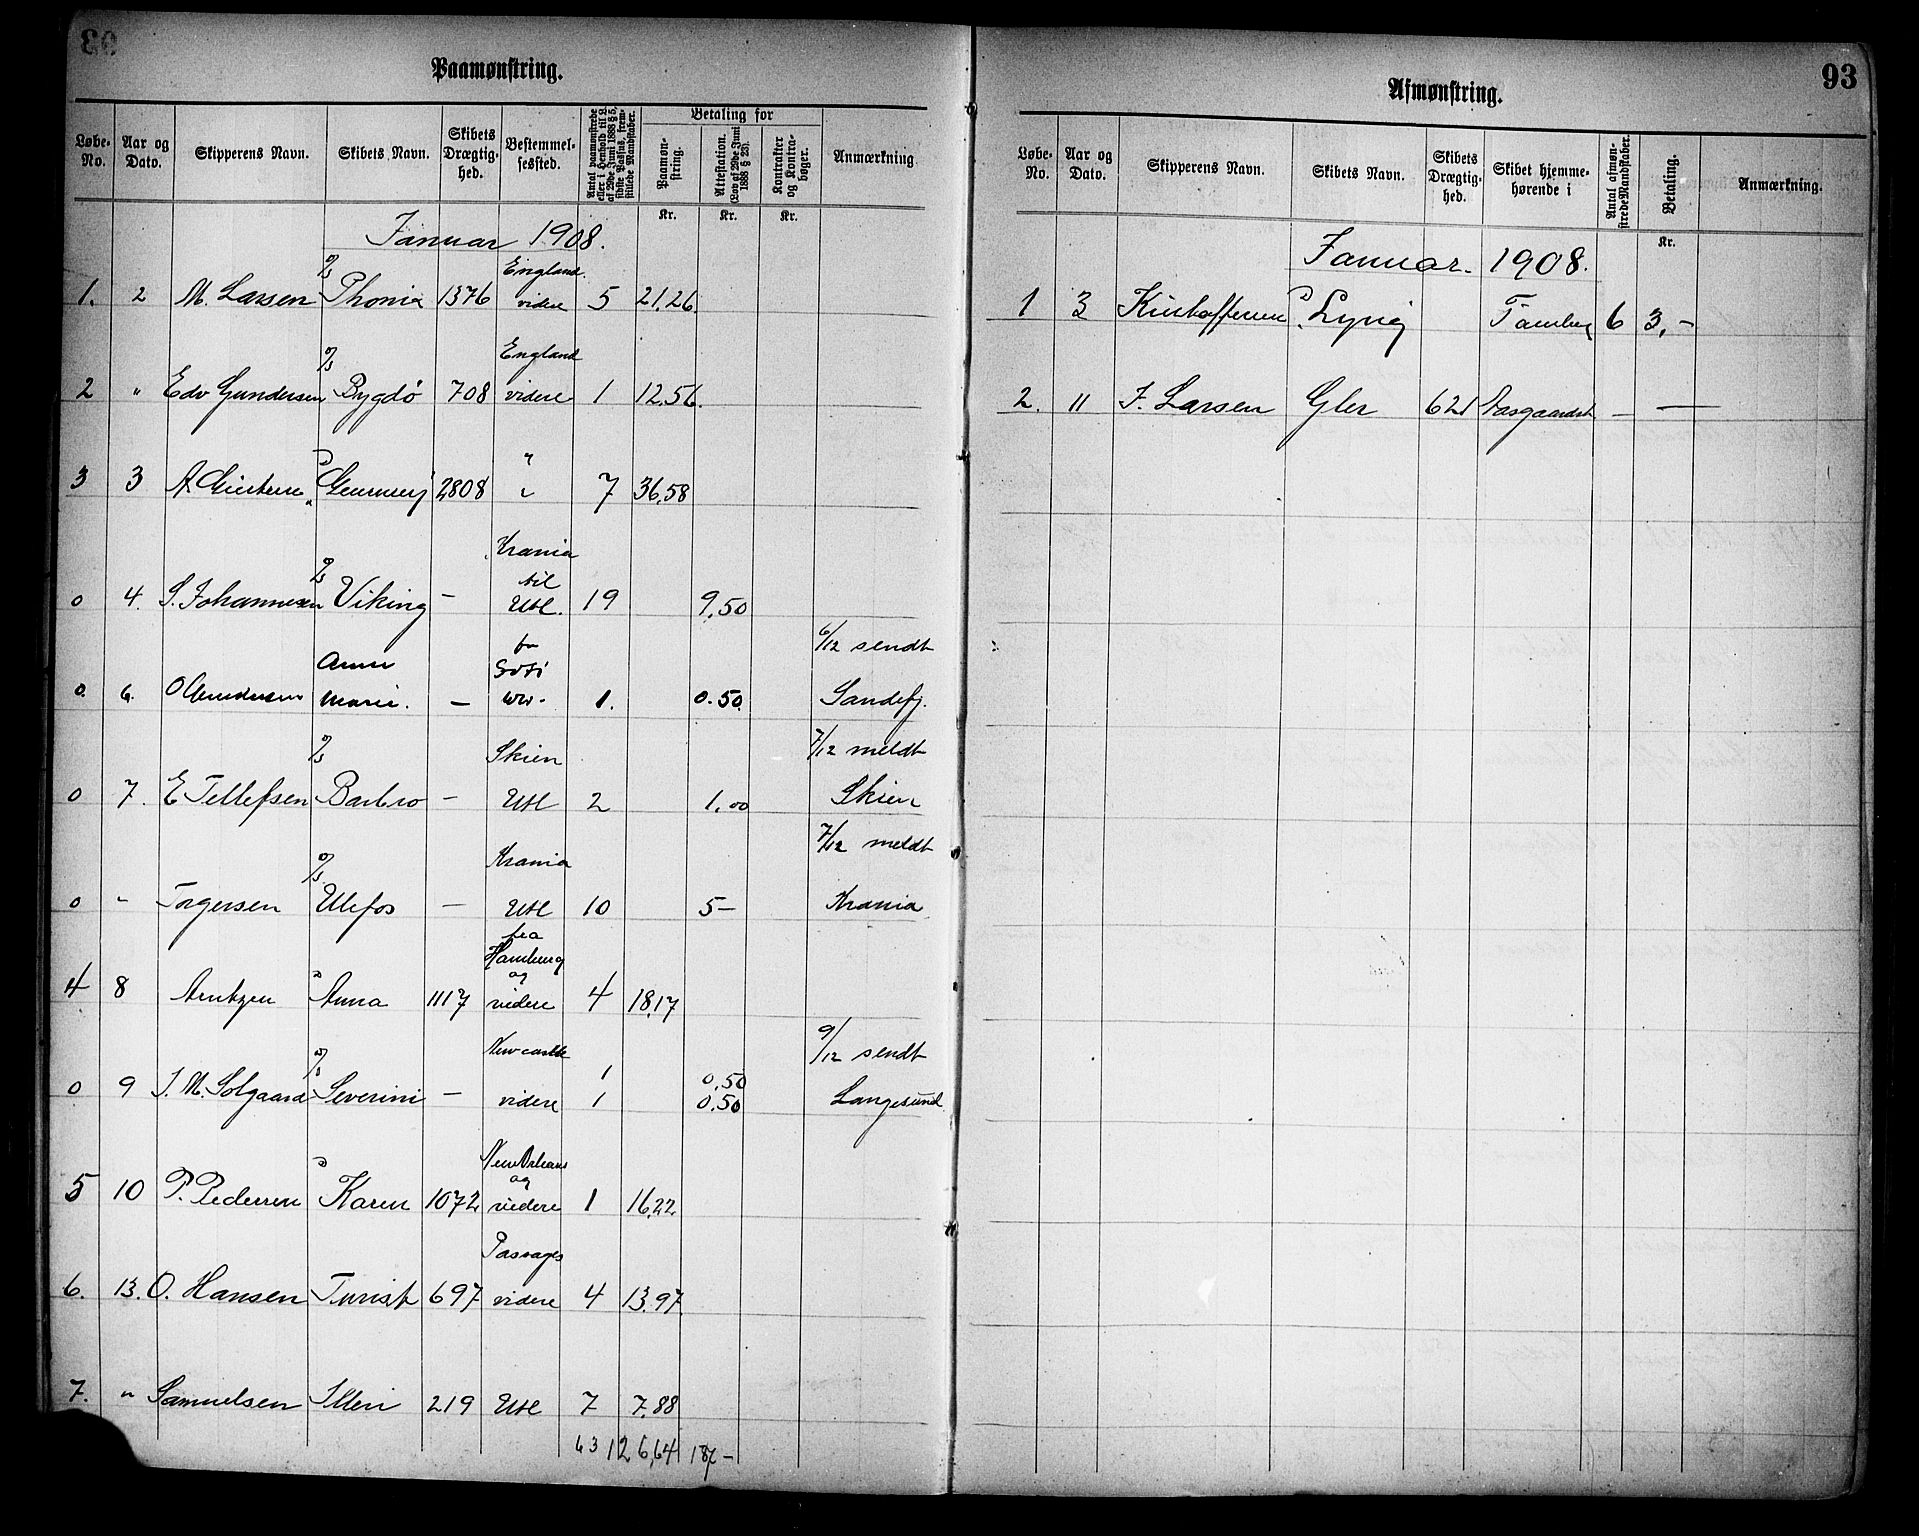 Paamønstring.
Løbe-No. Aar og Dato. Skipperens Navn. Skibets Navn. Skibets Drægtig-hed. Bestemmel-sessted. Antal paamønstrede eller i Henhold til L. af 29de Juni 1888 § 5, sidste Passus, frem-stillede Mandskaber. Betaling for Paamøn-string. Attestation. (Lov af 29de Juni 1888 § 23). Kontrakter og Kontra-bøger. Anmærkning.
Kr. Kr. Kr.
Januar 1908.
England
1. 2 M. Larsen Phonia 1376 videre 5 21,26
England
2 " Edv Gundersen Bygdø 708 videre 1 12,56
"
3 3 2808 " 7 36,58
Krania
til
0 4. S. Johannesen Viking – Utl. 19 9,50
6/12 sendt
0. 6. Marie. – 1. 0.50 Sandefj.
Skien 7/12 meldt
0 7. E Tellefsen Barbro – Utl 2 1,00 Skien
Krania 7/12 meldt
0 " Torgersen Ulefos – Utl 10 5– Krania
Hamburg
og
4 8 Arntzen Anna 1117 videre 4 18,17
Newcastle 9/12 sendt
1 0,50
0 9 J. M. Solgaard Severini – videre 1 0,50 Langesund
New Orleans
og
5 10 P. Pedersen Karen 1072 videre 1 16,22
Passages
6. 13. O. Hansen Turist 697 videre 4 13,97
7. " Samuelsen 219 Utl 7 7,88
63 126,64
93
Afmønstring.
Løbe-No. Aar og Dato. Skipperens Navn. Skibets Navn. Skibets Drægtig-hed. Skibet hjemme-hørende i Antal afmøn-strede Mandskaber. Betaling. Anmærkning.
Kr.
Januar. 1908.
1 3 6 3,–
2. 11 J. Larsen Gler 621 Aasgaardst – –